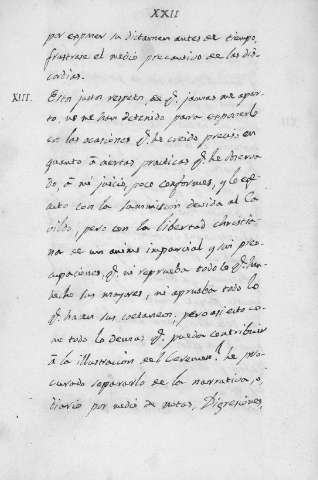 XXII
por exponer su dictamen antes de tiempo,
frustrase el medio precautivo de las dis-
cordias.
XIII. Estos justos respetos, de q.e jamas me apar-
to, no me han detenido para exponerlo
en las ocasiones q.e he creido preciso en
quanto à ciertas practicas q.e he observa-
do, à mi juicio, poco conformes, y lo eje-
cuto con la sumision devida al Ca-
vildo, pero con la libertad christia-
na de un animo imparcial y sin preo-
cupaciones, q.e ni reprueba todo lo q.e han
hecho sus mayores, ni aprueba todo lo
q.e hacen sus coetaneos. pero asi esto co-
mo todo lo demas q.e pueda contribuir
à la illustracion del Ceremon.l he pro-
curado separarlo de la narrativa, ò
diario por medio de notas, Digresiones,